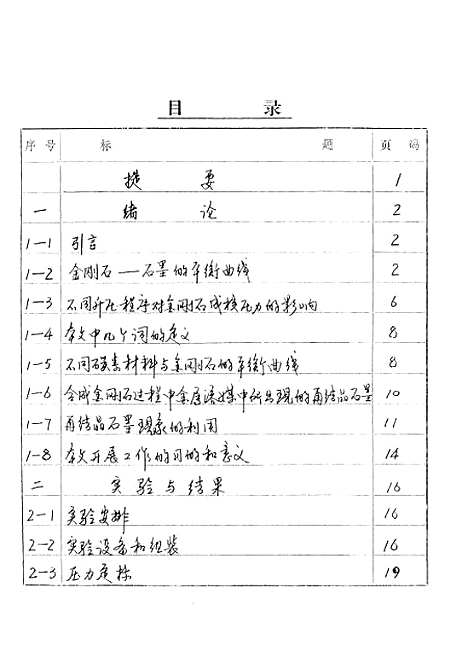 目 录
序号 标 题 页码
提 要 1
一 绪 论 2
1-1 引言 2
1-2 金刚石——石墨的平衡曲线 2
1-3 不同升压程序对金刚石成核压力的影响 6
1-4 本文中几个词的定义 8
1-5 不同碳素材料与金刚石的平衡曲线 8
1-6 合成金刚石过程中金属溶媒中所出现的再结晶石墨 10
1-7 再结晶石墨现象的利用 11
1-8 本文开展工作的目的和意义 14
二 实验与结果 16
2-1 实验安排 16
2-2 实验设备和组装 16
2-3 压力定标 19